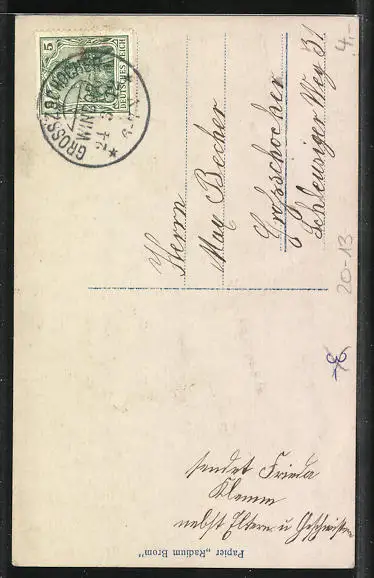 5
DEUTSCHES REICH
GROSSZSCHOCHER
WINDORF
Herrn
Max Becher
Großzschocher
Schleusiger Weg 31
4.-
20-13
sendet Frieda
Klemm
nebst Eltern u Geschwister
Papier „Radium Brom"